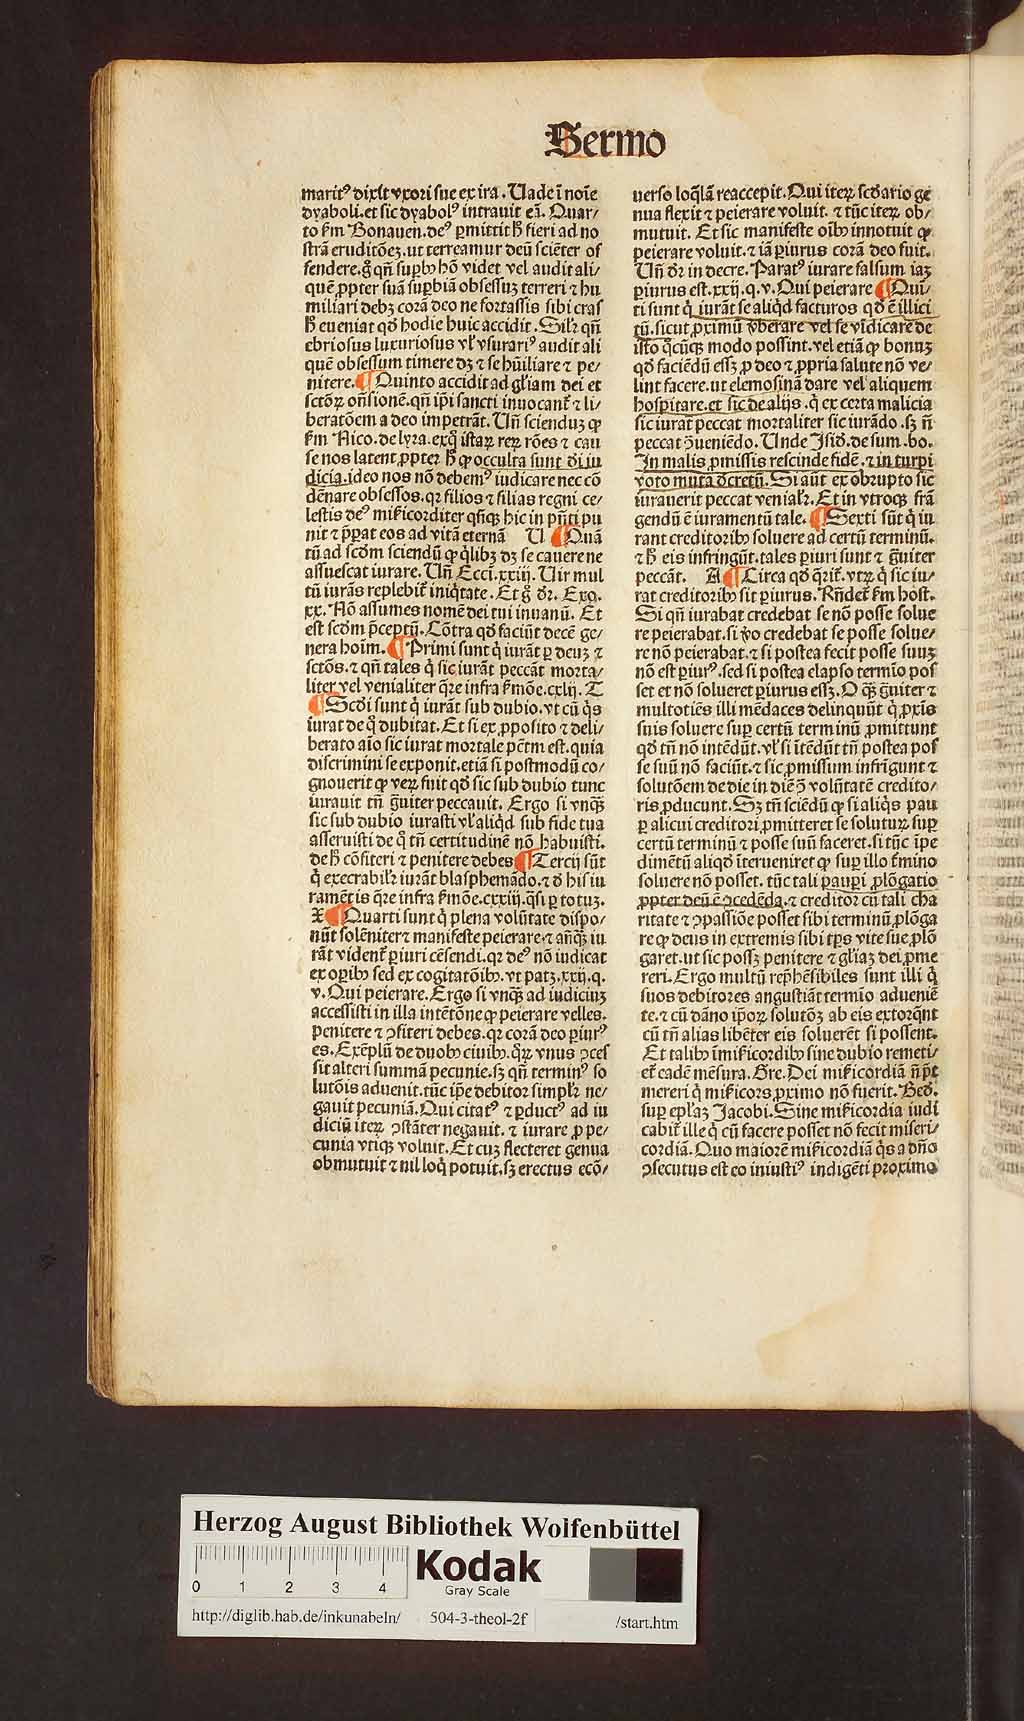 Sermo
maritꝰ dixit vxori sue ex ira. Uade ī noīe
dyaboli. et sic dyabolꝰ intrauit eā. Quar⸗
to ẜm Bonauen. deꝰ ꝑmittit ħ fieri ad no
strā eruditōeꝫ. ut terreamur deū sciēter of
fendere. gͦ qn̄ supbꝰ hō videt vel audit ali⸗
quē ꝓpter suā supbiā obsessuꝫ terreri ⁊ hu
miliari debꝫ corā deo ne fortassis sibi cras
ħ eueniat qd̓ hodie huic accidit. Silr̄ qn̄
ebriosus luxuriosus vl̓ vsurariꝰ audit ali
quē obsessum timere dꝫ ⁊ se hūiliare ⁊ pe⸗
nitere. ¶ Quinto accidit ad gl̓iam dei et
sctōꝝ on̄sionē. qn̄ ip̄i sancti inuocant̄ ⁊ li⸗
beratōem a deo impetrāt. Un̄ scienduꝫ ꝙ
ẜm Nico. de lyra. exq̓ istaꝝ reꝝ rōes ⁊ cau
se nos latent ꝓpter ħ ꝙ occulta sunt dī iu
dicia. ideo nos nō debemꝰ iudicare nec cō
dēnare obsessos. qꝛ filios ⁊ filias regni ce⸗
lestis deꝰ mīcorditer qn̄qꝫ hic in pn̄ti pu
nit ⁊ p̄parat eos ad vitā eternā U ¶ Quā
tū ad scd̓m sciendū ꝙ qͥlibꝫ dꝫ se cauere ne
assuescat iurare. Un̄ Ecci. xxiij. Uir mul
tū iurās replebit̄ iniqͥtate. Et gͦ dr̄. Exo.
xx. Nō assumes nomē dei tui in uanū. Et
est scd̓m p̄ceptū. Cōtra qd̓ faciūt decē ge⸗
nera hoīm. ¶ Primi sunt qͥ iurāt p deuꝫ ⁊
sctōs. ⁊ qn̄ tales qͥ sic iurāt peccāt morta⸗
liter vel venialiter q̄re infra ẜmōe. cxlij. T
¶ Scd̓i sunt qͥ iurāt sub dubio. vt cū qͥs
iurat de qͦ dubitat. Et si ex ꝓposito ⁊ deli⸗
berato aīo sic iurat mortale pctm̄ est. quia
discrimini se exponit. etiā si postmodū co⸗
gnouerit ꝙ veꝝ fuit qd̓ sic sub dubio tunc
iurauit tn̄ gͣuiter peccauit. Ergo si vnqͣꝫ
sic sub dubio iurasti vl̓ aliqd̓ sub fide tua
asseruisti de qͦ tn̄ certitudinē nō habuisti.
de ħ cōfiteri ⁊ penitere debes ¶ Tercij sūt
qͥ execrabilr̄ iurāt blasphemādo. ⁊ d̓ his iu
ramētis q̄re infra ẜmōe. cxxiij. qͣsi p totuꝫ.
X ¶ Quarti sunt qͥ plena volūtate dispo⸗
nūt solēniter ⁊ manifeste peierare. ⁊ anqͣꝫ iu
rāt vident̄ ꝑiuri cēsendi. qꝛ deꝰ nō iudicat
ex oꝑibꝰ sed ex cogitatōibꝰ. vt patꝫ. xxij. q.
v. Qui peierare. Ergo si vnqͣꝫ ad iudiciuꝫ
accessisti in illa intētōne ꝙ peierare velles.
penitere ⁊ ꝯfiteri debes. qꝛ corā deo ꝑiurꝰ
es. Exēplū de duobꝰ ciuibꝰ. qͦꝝ vnus ꝯces
sit alteri summā pecunie. sꝫ qn̄ terminꝰ so
lutōis aduenit. tūc ip̄e debitor simplr̄ ne⸗
gauit pecuniā. Qui citatꝰ ⁊ ꝑductꝰ ad iu
diciū iteꝝ ꝯstāter negauit. ⁊ iurare ꝓ pe⸗
cunia vtiqꝫ voluit. Et cuꝫ flecteret genua
obmutuit ⁊ nil loqͥ potuit. sꝫ erectus ecō⸗
uerso loq̄lā reaccepit. Qui iteꝝ scd̓ario ge
nua flexit ⁊ peierare voluit. ⁊ tūc iteꝝ ob⸗
mutuit. Et sic manifeste oībꝰ innotuit ꝙ
peierare voluit. ⁊ iā ꝑiurus corā deo fuit.
Un̄ dr̄ in decre. Paratꝰ iurare falsum iaꝫ
ꝑiurus est. xxij. q. v. Qui peierare ¶ Qui⸗
ti sunt qͥ iurāt se aliqd̓ facturos qd̓ ē illici
tū. sicut ꝓximū v̓berare vel se vīdicare de
isto qͦcūqꝫ modo possint. vel etiā ꝙ bonuꝫ
qd̓ faciēdū essꝫ ꝓ deo ⁊ ꝓpria salute nō ve⸗
lint facere. ut elemosinā dare vel aliquem
hospitare. et sic de alijs. qͥ ex certa malicia
sic iurat peccat mortaliter sic iurādo. sꝫ n̄
peccat ꝯueniēdo. Unde Isid̓. de sum. bo.
In malis ꝓmissis rescinde fidē. ⁊ in turpi
voto muta d̓cretū. Si aūt ex obrupto sic
iurauerit peccat venialr̄. Et in vtroqꝫ frā
gendū ē iuramentū tale. ¶ Sexti sūt qͥ iu
rant creditoribꝰ soluere ad certū terminū.
⁊ ħ eis infringūt. tales ꝑiuri sunt ⁊ gͣuiter
peccāt. A ¶ Circa qd̓ q̄rit̄. vtꝝ qͥ sic iu⸗
rat creditoribꝰ sit ꝑiurus. Rn̄det̄ ẜm host.
Si qn̄ iurabat credebat se nō posse solue
re peierabat. si v̓o credebat se posse solue⸗
re nō peierabat. ⁊ si postea fecit posse suuꝫ
nō est ꝑiurꝰ. sed si postea elapso termīo pos
set et nō solueret ꝑiurus essꝫ. O qͣꝫ gͣuiter ⁊
multotiēs illi mēdaces delinquūt qͥ ꝓxīs
suis soluere suꝑ certū terminū ꝓmittunt
qd̓ tn̄ nō intēdūt. vl̓ si ītēdūt tn̄ postea pos
se suū nō faciūt. ⁊ sic ꝓmissum infrīgunt ⁊
solutōem de die in diē ꝯ̄ volūtatē credito⸗
ris ꝓducunt. Sꝫ tn̄ sciēdū ꝙ si aliqͥs pau
ꝑ alicui creditori ꝓmitteret se soluturꝝ suꝑ
certū terminū ⁊ posse suū faceret. si tūc īpe
dimētū aliqd̓ īterueniret ꝙ suꝑ illo ẜmino
soluere nō posset. tūc tali pauꝑi ꝓlōgatio
ꝓpter deū ē ꝯcedēda. ⁊ creditor cū tali cha
ritate ⁊ ꝯpassiōe posset sibi terminū ꝓlōga
re ꝙ deus in extremis sibi tꝑs vite sue ꝓlō
garet. ut sic possꝫ penitere ⁊ gl̓iaꝫ dei ꝓme
reri. Ergo multū rep̄hēsibiles sunt illi qͥ
suos debitores angustiāt termīo adueniē
te. ⁊ cū dāno ip̄oꝝ solutōꝫ ab eis extorqn̄t
cū tn̄ alias libēter eis soluerēt si possent.
Et talibꝰ īmīcordibꝰ sine dubio remeti⸗
et̄ eadē mēsura. Gre. Dei mīcordiā n̄ pōt
mereri qͥ mīcors ꝓximo nō fuerit. Bed̓.
suꝑ epl̓aꝫ Jacobi. Sine mīcordia iudi
cabit̄ ille qͥ cū facere posset nō fecit miseri⸗
cordiā. Quo maiorē mīcordiā qͥs a dn̄o
ꝯsecutus est eo iniustiꝰ indigēti proximo
Herzog August Bibliothek Wolfenbüttel
0 1 2 3 4
Kodak
Gray Scale
http://diglib.hab.de/inkunabeln/ 504-3-theol-2f /start.htm